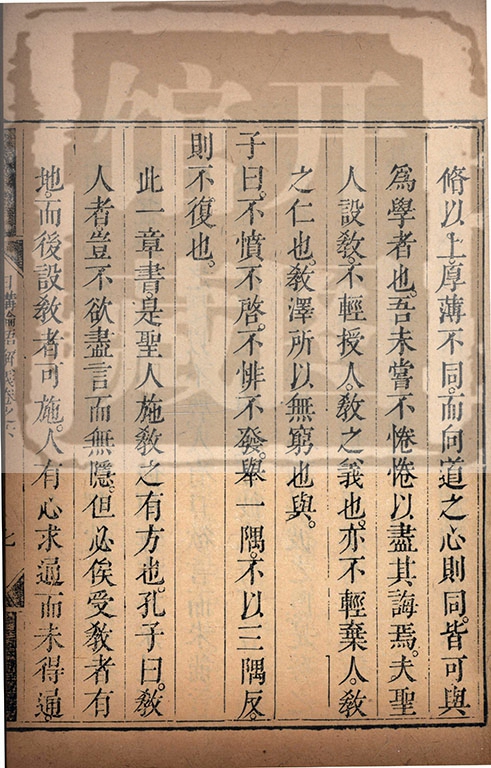 脩以上厚薄不同。而向道之心則同。皆可與
爲學者也。吾未嘗不惓惓以盡其誨焉。夫聖
人設敎。不輕授人。敎之義也。亦不輕棄人。敎
之仁也。敎澤所以無窮也與。
子曰。不憤不啓。不悱不發。舉一隅。不以三隅反。
則不復也。
此一章書。是聖人施敎之有方也。孔子曰。敎
人者豈不欲盡言而無隱。但必俟受敎者有
地。而後設敎者可施。人有心求通而未得通。
日講論語解義卷之六
七